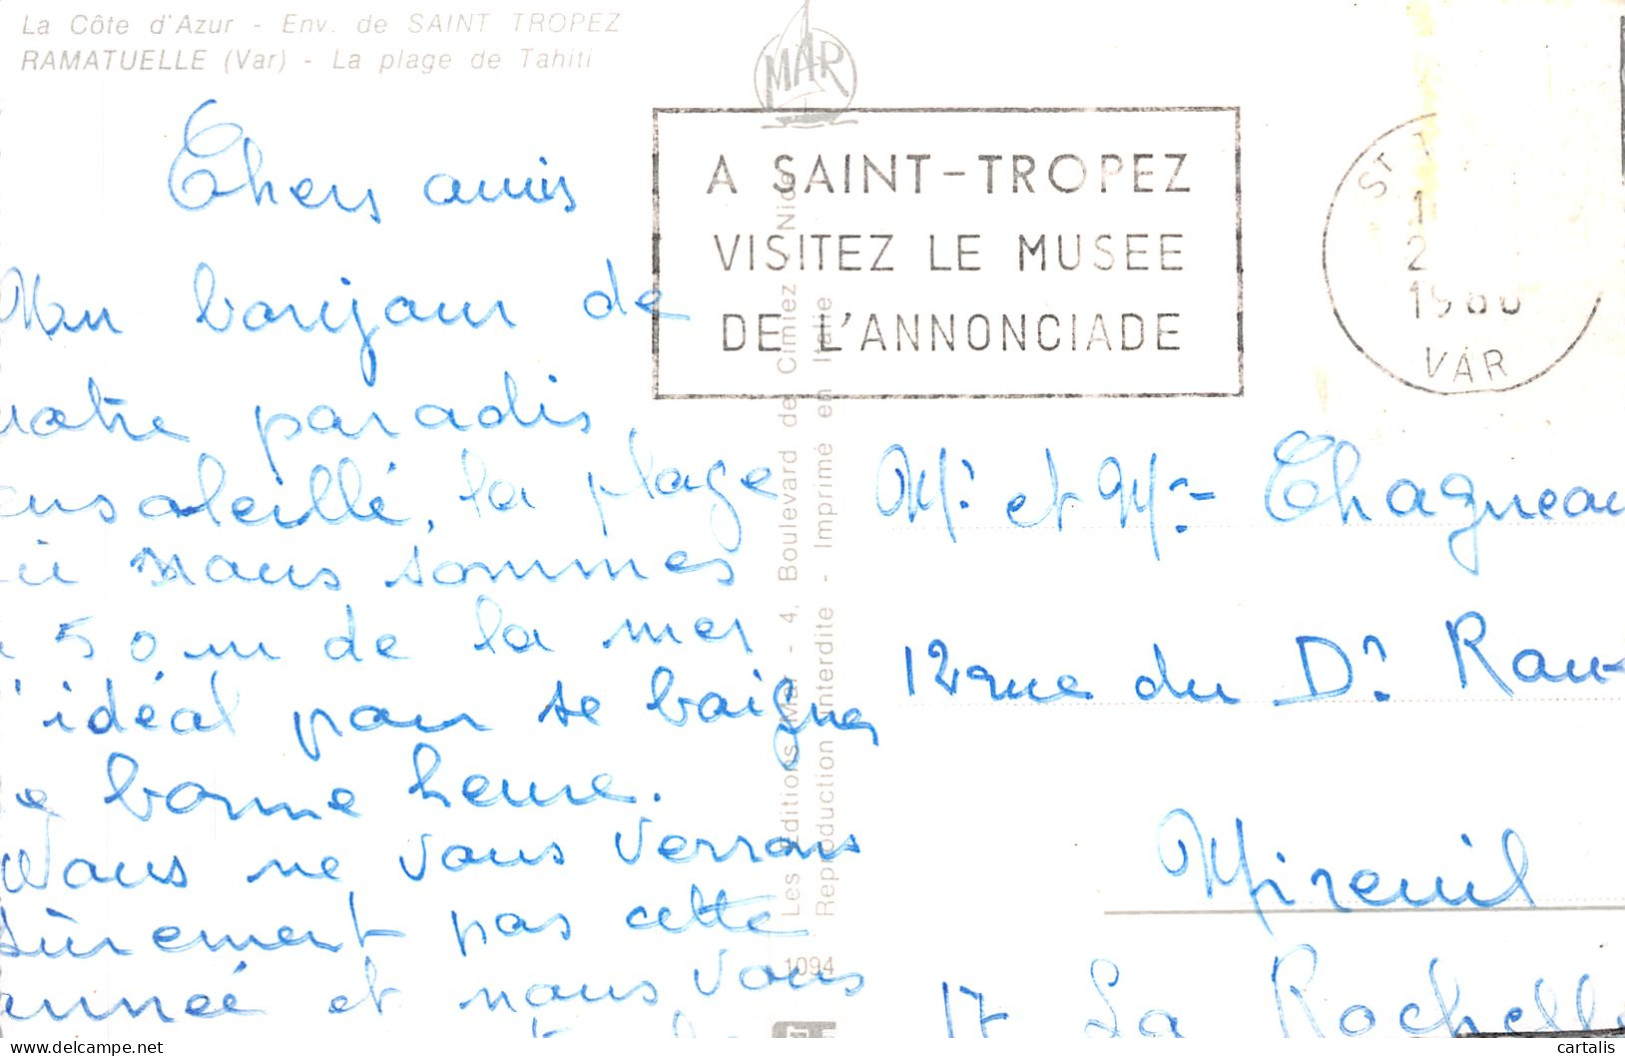 La Côte d'Azur - Env. de SAINT TROPEZ
RAMATUELLE (Var) - La plage de Tahiti
MAR
A SAINT-TROPEZ
VISITEZ LE MUSEE
DE L'ANNONCIADE
ST
1
2
1980
VAR
Chers amis
Mon bonjour de
notre paradis
ensoleillé, la plage
où nous sommes
à 50 m de la mer
l'idéal pour se baigner
de bonne heure.
Nous ne vous verrons
sûrement pas cette
année et nous vous
Les Editions Mar - 4, Boulevard de Cimiez, Nice
Reproduction interdite - Imprimé en Italie
1094
Mr et Mme Chagneau
12 rue du Dr Roux
Mireuil
17 La Rochelle
cartalis